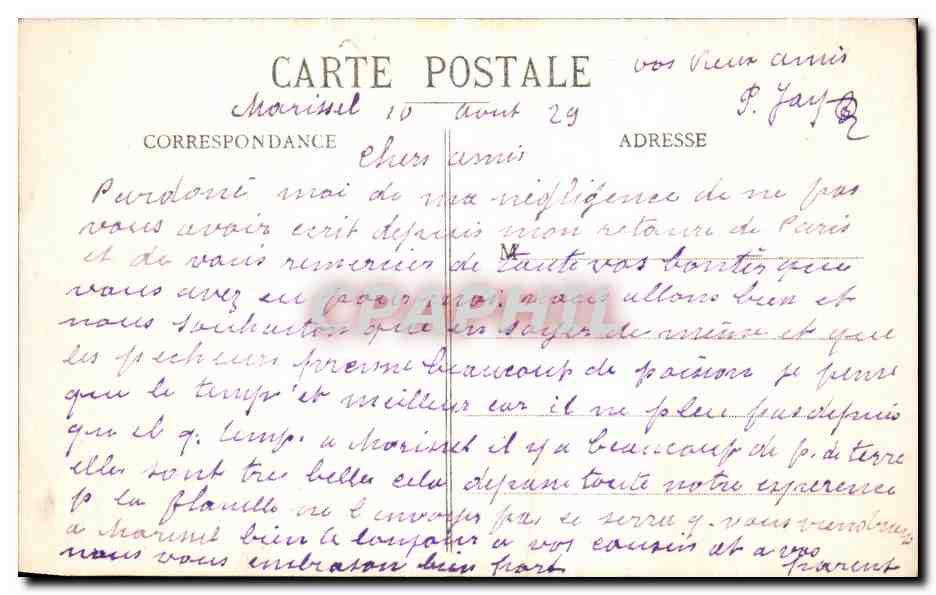 CARTE POSTALE
vos vieux amis
P. Jay
Marissel 10 aout 29
CORRESPONDANCE
ADRESSE
Chers amis
Pardoné moi de ma négligence de ne pas
vous avoir ecrit depuis mon retoure de Paris
M
et de vous remercier de toute vos bontés que
vous avez eu pour moi. nous allons bien et
CPAPHIL
nous souhaiton que en soyer de même et que
les pecheurs prenne beaucoup de poison je pense
que le temp et meilleur car il ne pleu pas depuis
que el q. temp. a Marissel il y a beaucoup de p. de terre
elles sont tres belles cela dépase toute notre experence
p la flanelle ne l envoyer pas se serra q. vous viendrons
a Marissel bien le bonjour a vos cousins et a vos
nous vous embrason bien fort parent